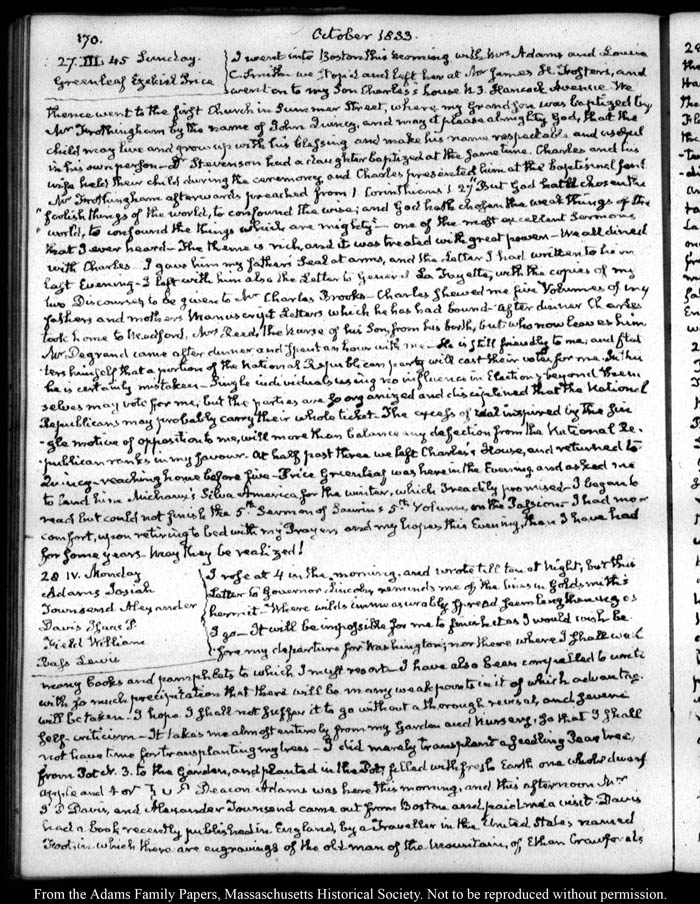 170.
October 1833.
27. III. 45 Sunday.
Greenleaf Ezekiel Price
I went into Boston this morning with Mrs Adams and Louisa
C. Smith we stop'd and left her at Mr James H. Foster's, and
went on to my Son Charles's house N. 3. Hancock Avenue. We
thence went to the first Church in Summer Street, where my Grandson was baptized by
Mr Frothingham by the name of John Quincy, and may it please almighty God, that the
child may live and grow up with his blessing and make his name respectable and useful
in his own person— Dr Stevenson had a daughter baptized at the same time. Charles and his
wife held their child during the ceremony and Charles presented him at the baptismal font
Mr Frothingham afterwards preached from 1. Corinthians 1. 27 "But God hath chosen the
"foolish things of the world, to confound the wise; and God hath chosen the weak things of the
"world, to confound the things which are mighty"— one of the most excellent Sermons
that I ever heard— The theme is rich, and it was treated with great power— We all dined
with Charles— I gave him my father's Seal at arms, and the Letter I had written to him
last Evening— I left with him also the Letter to General La Fayette, with the copies of my
two Discourses to be given to Mr Charles Brooks— Charles shewed me five Volumes of my
fathers and mothers Manuscript Letters which he has had bound— after dinner Charles
took home to Medford, Mrs Reed, the Nurse of his Son, from his birth, but who now leaves him
Mr Degrand came after dinner and spent an hour with me— He is still friendly to me; and flat
ters himself that a portion of the National Republican party will cast their votes for me. In this
he is certainly mistaken— Single individuals using no influence in Elections beyond them
selves may vote for me, but the parties are so organized and disciplined that the National
Republicans may probably carry their whole ticket. The excess of zeal inspired by the sin
-gle motive of opposition to me, will more than balance any defection from the National Re-
publican ranks in my favour. At half past three we left Charles's House, and returned to
Quincy— reaching home before five— Price Greenleaf was here in the Evening and asked me
to lend him Michaux's Silva America for the winter, which I readily promised— I began to
read but could not finish the 5th Sermon of Saurin's 5th Volume, on the Passion— I had more
comfort, upon retiring to bed with my Prayers and my hopes this Evening, than I have had
for some years— May they be realized!
28 IV. Monday
Adams Josiah
Townsend Alexander
Davis Isaac P.
Field William
Bass Lewis
I rose at 4 in the morning, and wrote till ten at Night, but this
Letter to Governor Lincoln reminds me of the lines in Goldsmith's
hermit— Where wilds immeasurably spread seem lengthening as
I go— It will be impossible for me to finish it as I would wish be
fore my departure for Washington; nor there where I shall want
many books and pamphlets to which I must resort— I have also been compelled to write
with so much precipitation that there will be many weak points in it of which advantage
will be taken— I hope I shall not suffer it to go without a thorough revisal, and severe
self-criticism— It takes me almost entirely from my Garden and Nursery, so that I shall
not have time for transplanting my trees— I did merely transplant a seedling Pear tree,
from Pot N. 3. to the Garden, and planted in the Pot, filled with fresh Earth one whole dwarf
apple and 4 or 5 Deacon Adams was here this morning, and this afternoon Mr
I P Davis, and Alexander Townsend came out from Boston and paid me a visit— Davis
had a book recently published in England, by a Traveller in the United States named
in which there are engravings of the old man of the mountain, of Ethan Crawford's
From the Adams Family Papers, Massachusetts Historical Society. Not to be reproduced without permission.